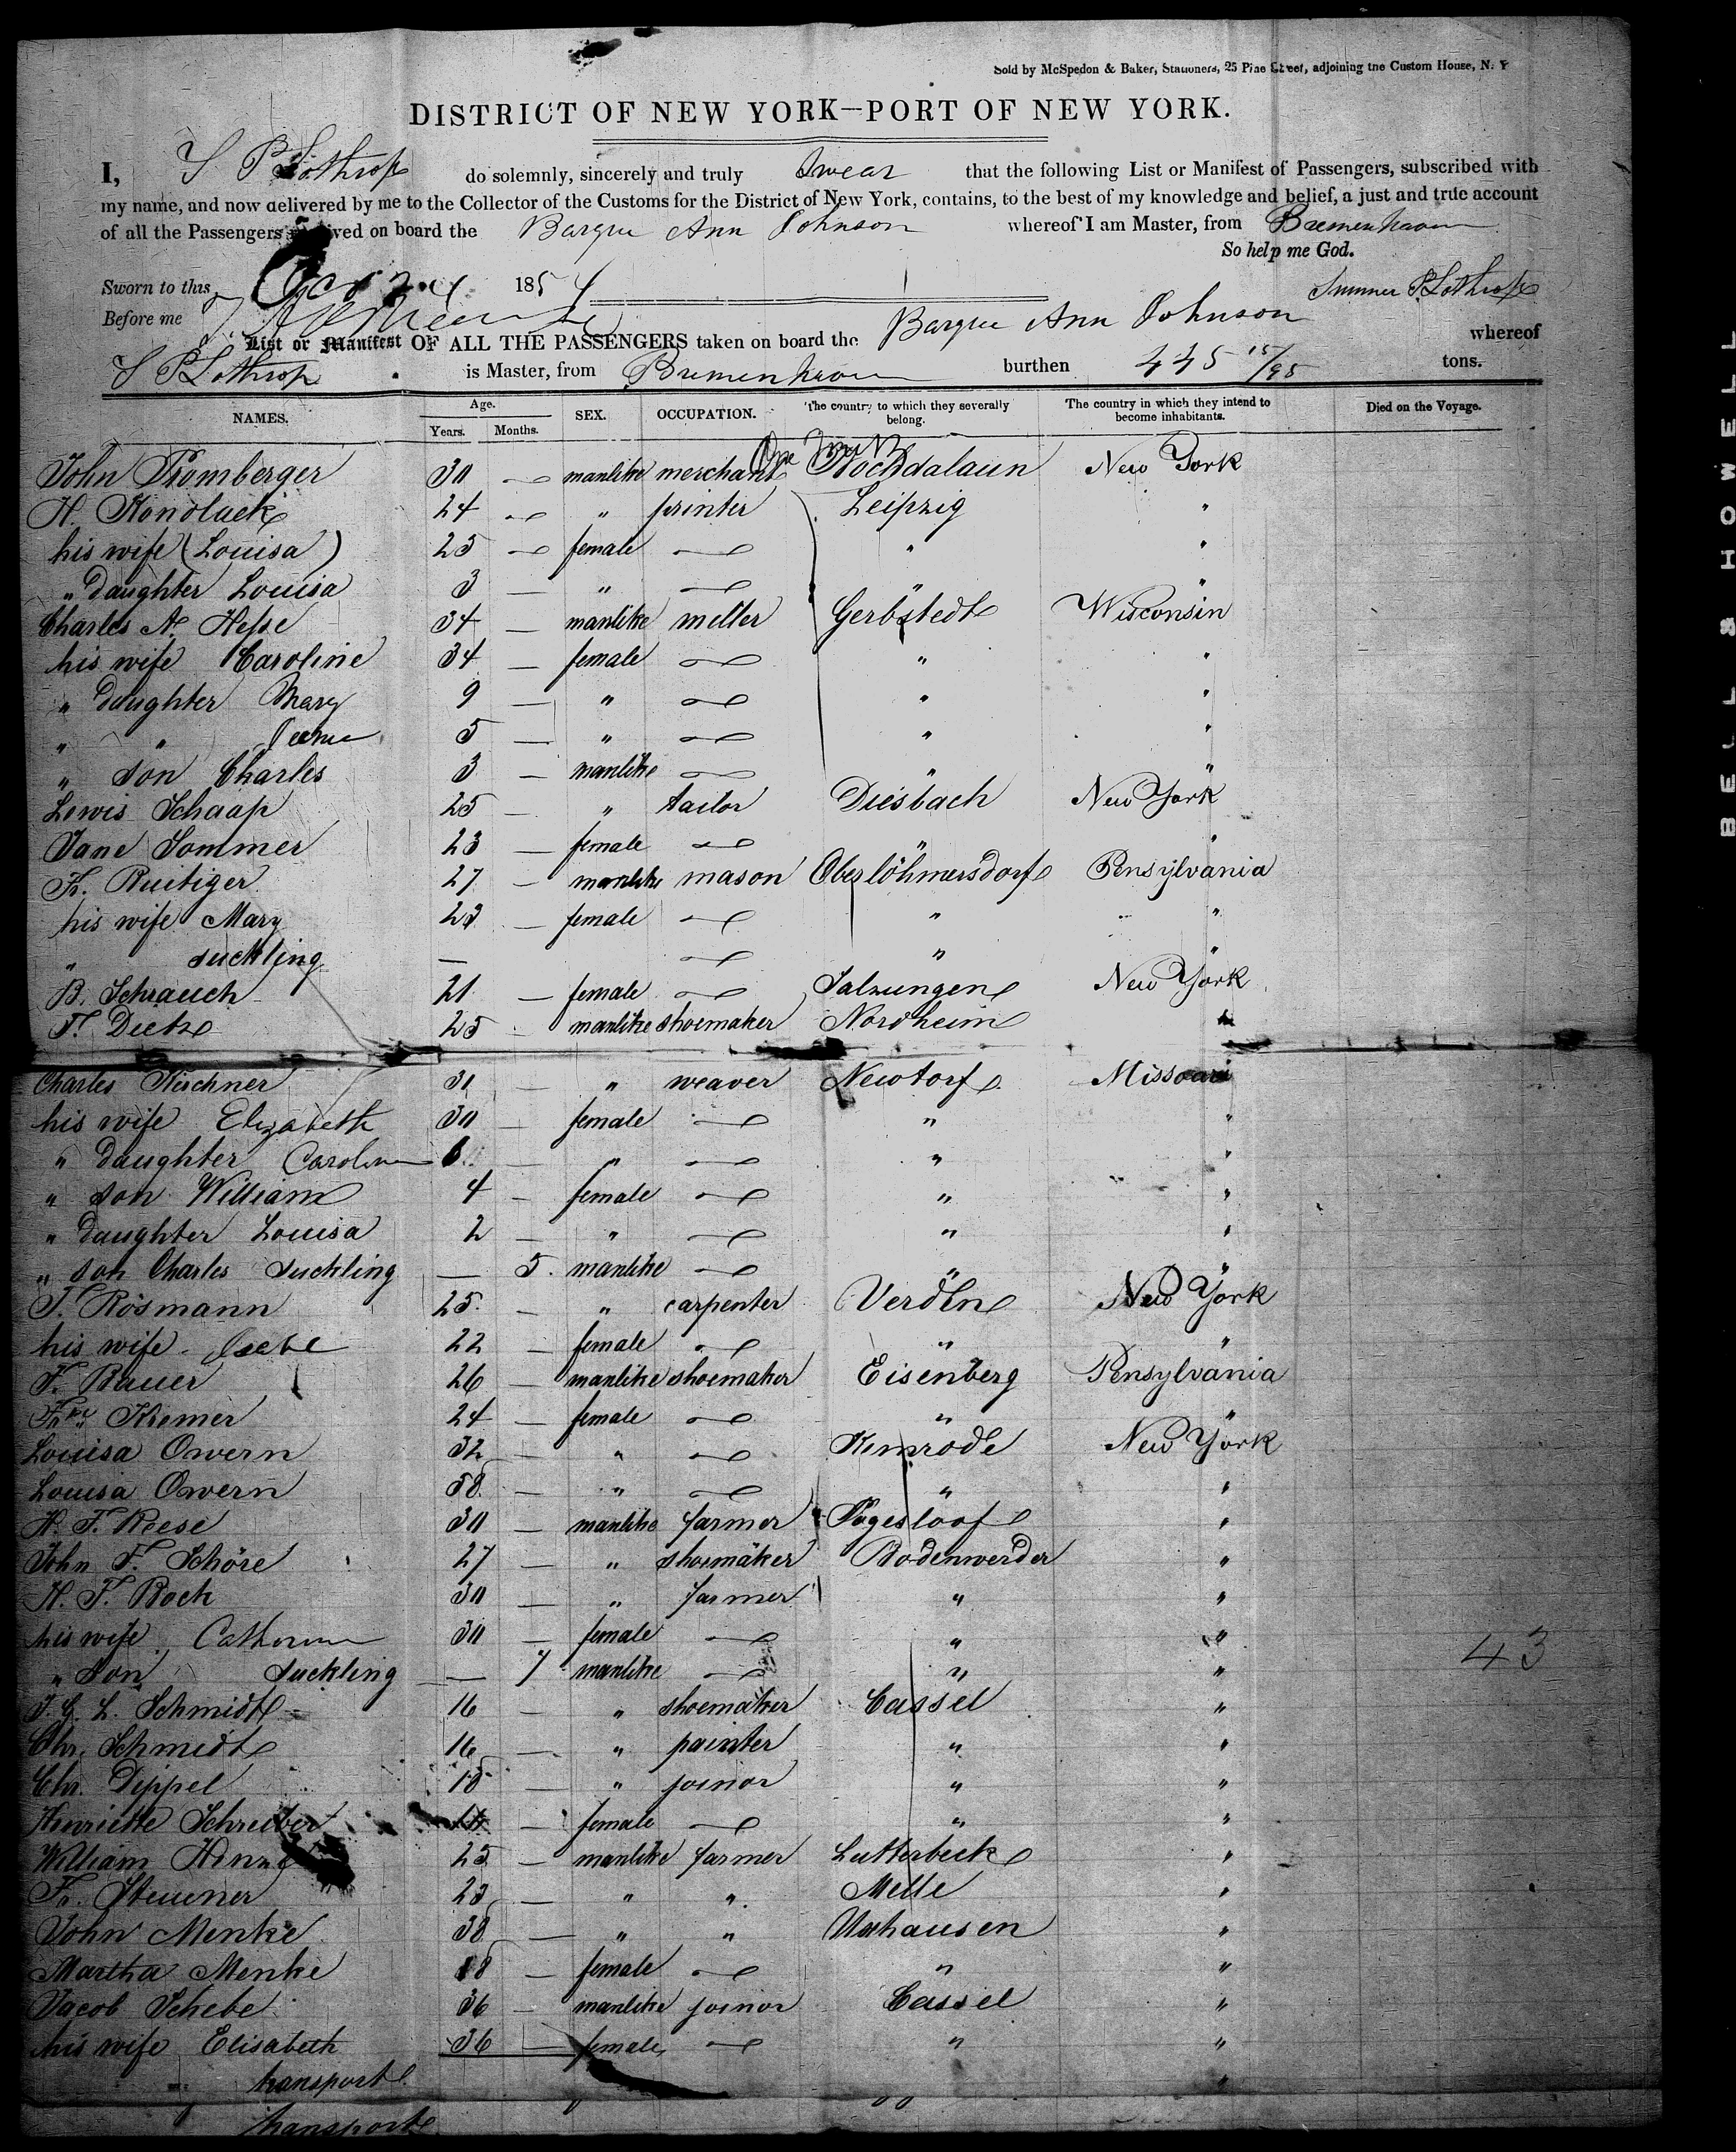 Sold by McSpedon & Baker, Stationers, 25 Pine Street, adjoining the Custom House, N. Y
DISTRICT OF NEW YORK—PORT OF NEW YORK.
I, S P Lothrop do solemnly, sincerely and truly Swear that the following List or Manifest of Passengers, subscribed with
my name, and now delivered by me to the Collector of the Customs for the District of New York, contains, to the best of my knowledge and belief, a just and true account
of all the Passengers received on board the Barque Ann Johnson whereof I am Master, from Bremenhaven
So help me God.
Sworn to this 1854 Sumner P Lothrop
Before me
List or Manifest OF ALL THE PASSENGERS taken on board the Barque Ann Johnson whereof
S P Lothrop is Master, from Bremenhaven burthen 445 15/95 tons.
NAMES. Age. Years. Months. SEX. OCCUPATION. The country to which they severally belong. The country in which they intend to become inhabitants. Died on the Voyage.
John Promberger 30 — manlike merchant Hochdalaun New York
H. Konoluck 24 — " printer Leipzig "
his wife (Louisa) 25 — female — " "
" daughter Louisa 3 — " — " "
Charles A. Hesse 34 — manlike melter Gerbstedt Wisconsin
his wife Caroline 34 — female — " "
" daughter Mary 9 — " — " "
" " 5 — " — " "
" son Charles 3 — manlike — " "
Lewis Schaap 25 — " tailor Diesbach New York
Jane Sommer 23 — female — " "
Fr. Ruetiger 27 — manlike mason Oberlöhmersdorf Pensylvania
his wife Mary 23 — female — " "
" suckling — — " "
B. Schrauch 21 — female — Salzungen New York
F. Decke 25 — manlike shoemaker Nordheim "
Charles Kirchner 31 — " weaver Newtorf Missouri
his wife Elizabeth 30 — female — " "
" daughter Caroline 6 — " — " "
" son William 4 — female — " "
" daughter Louisa 2 — " — " "
" son Charles suckling — 5 manlike — " "
F. Rosmann 25 — " carpenter Verden New York
his wife 22 — female — " "
F. Bauer 26 — manlike shoemaker Eisenberg Pensylvania
Fr. Kremer 24 — female — " "
Louisa Owern 32 — " — Kemrode New York
Louisa Owern 58 — " — " "
H. F. Reese 30 — manlike farmer "
John F. Schöre 27 — " shoemaker Bodenwerder "
H. F. Bock 30 — " farmer " "
his wife Catherine 30 — female — " "
" son suckling — 7 manlike — " " 43
F. G. L. Schmidt 16 — " shoemaker Cassel "
Chr. Schmidt 16 — " painter " "
Chr. Dippel 18 — " joinor " "
Henriette Schreiber — female — " "
William Hinze 25 — manlike farmer Lutterbeck "
Fr. Steuener 23 — " " Melle "
John Menke 38 — " " Uxhausen "
Martha Menke 18 — female — " "
Jacob Schebe 36 — manlike joinor Cassel "
his wife Elisabeth 36 — female — " "
transport "
transport
BELL & HOWELL